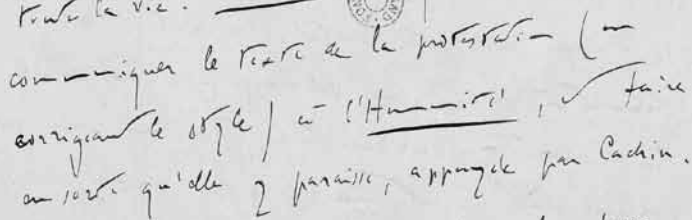 toute la vie.
communiquer le texte de la protestation (en
corrigeant le style) à l'Humanité, et faire
en sorte qu'elle y paraisse, appuyée par Cachin.